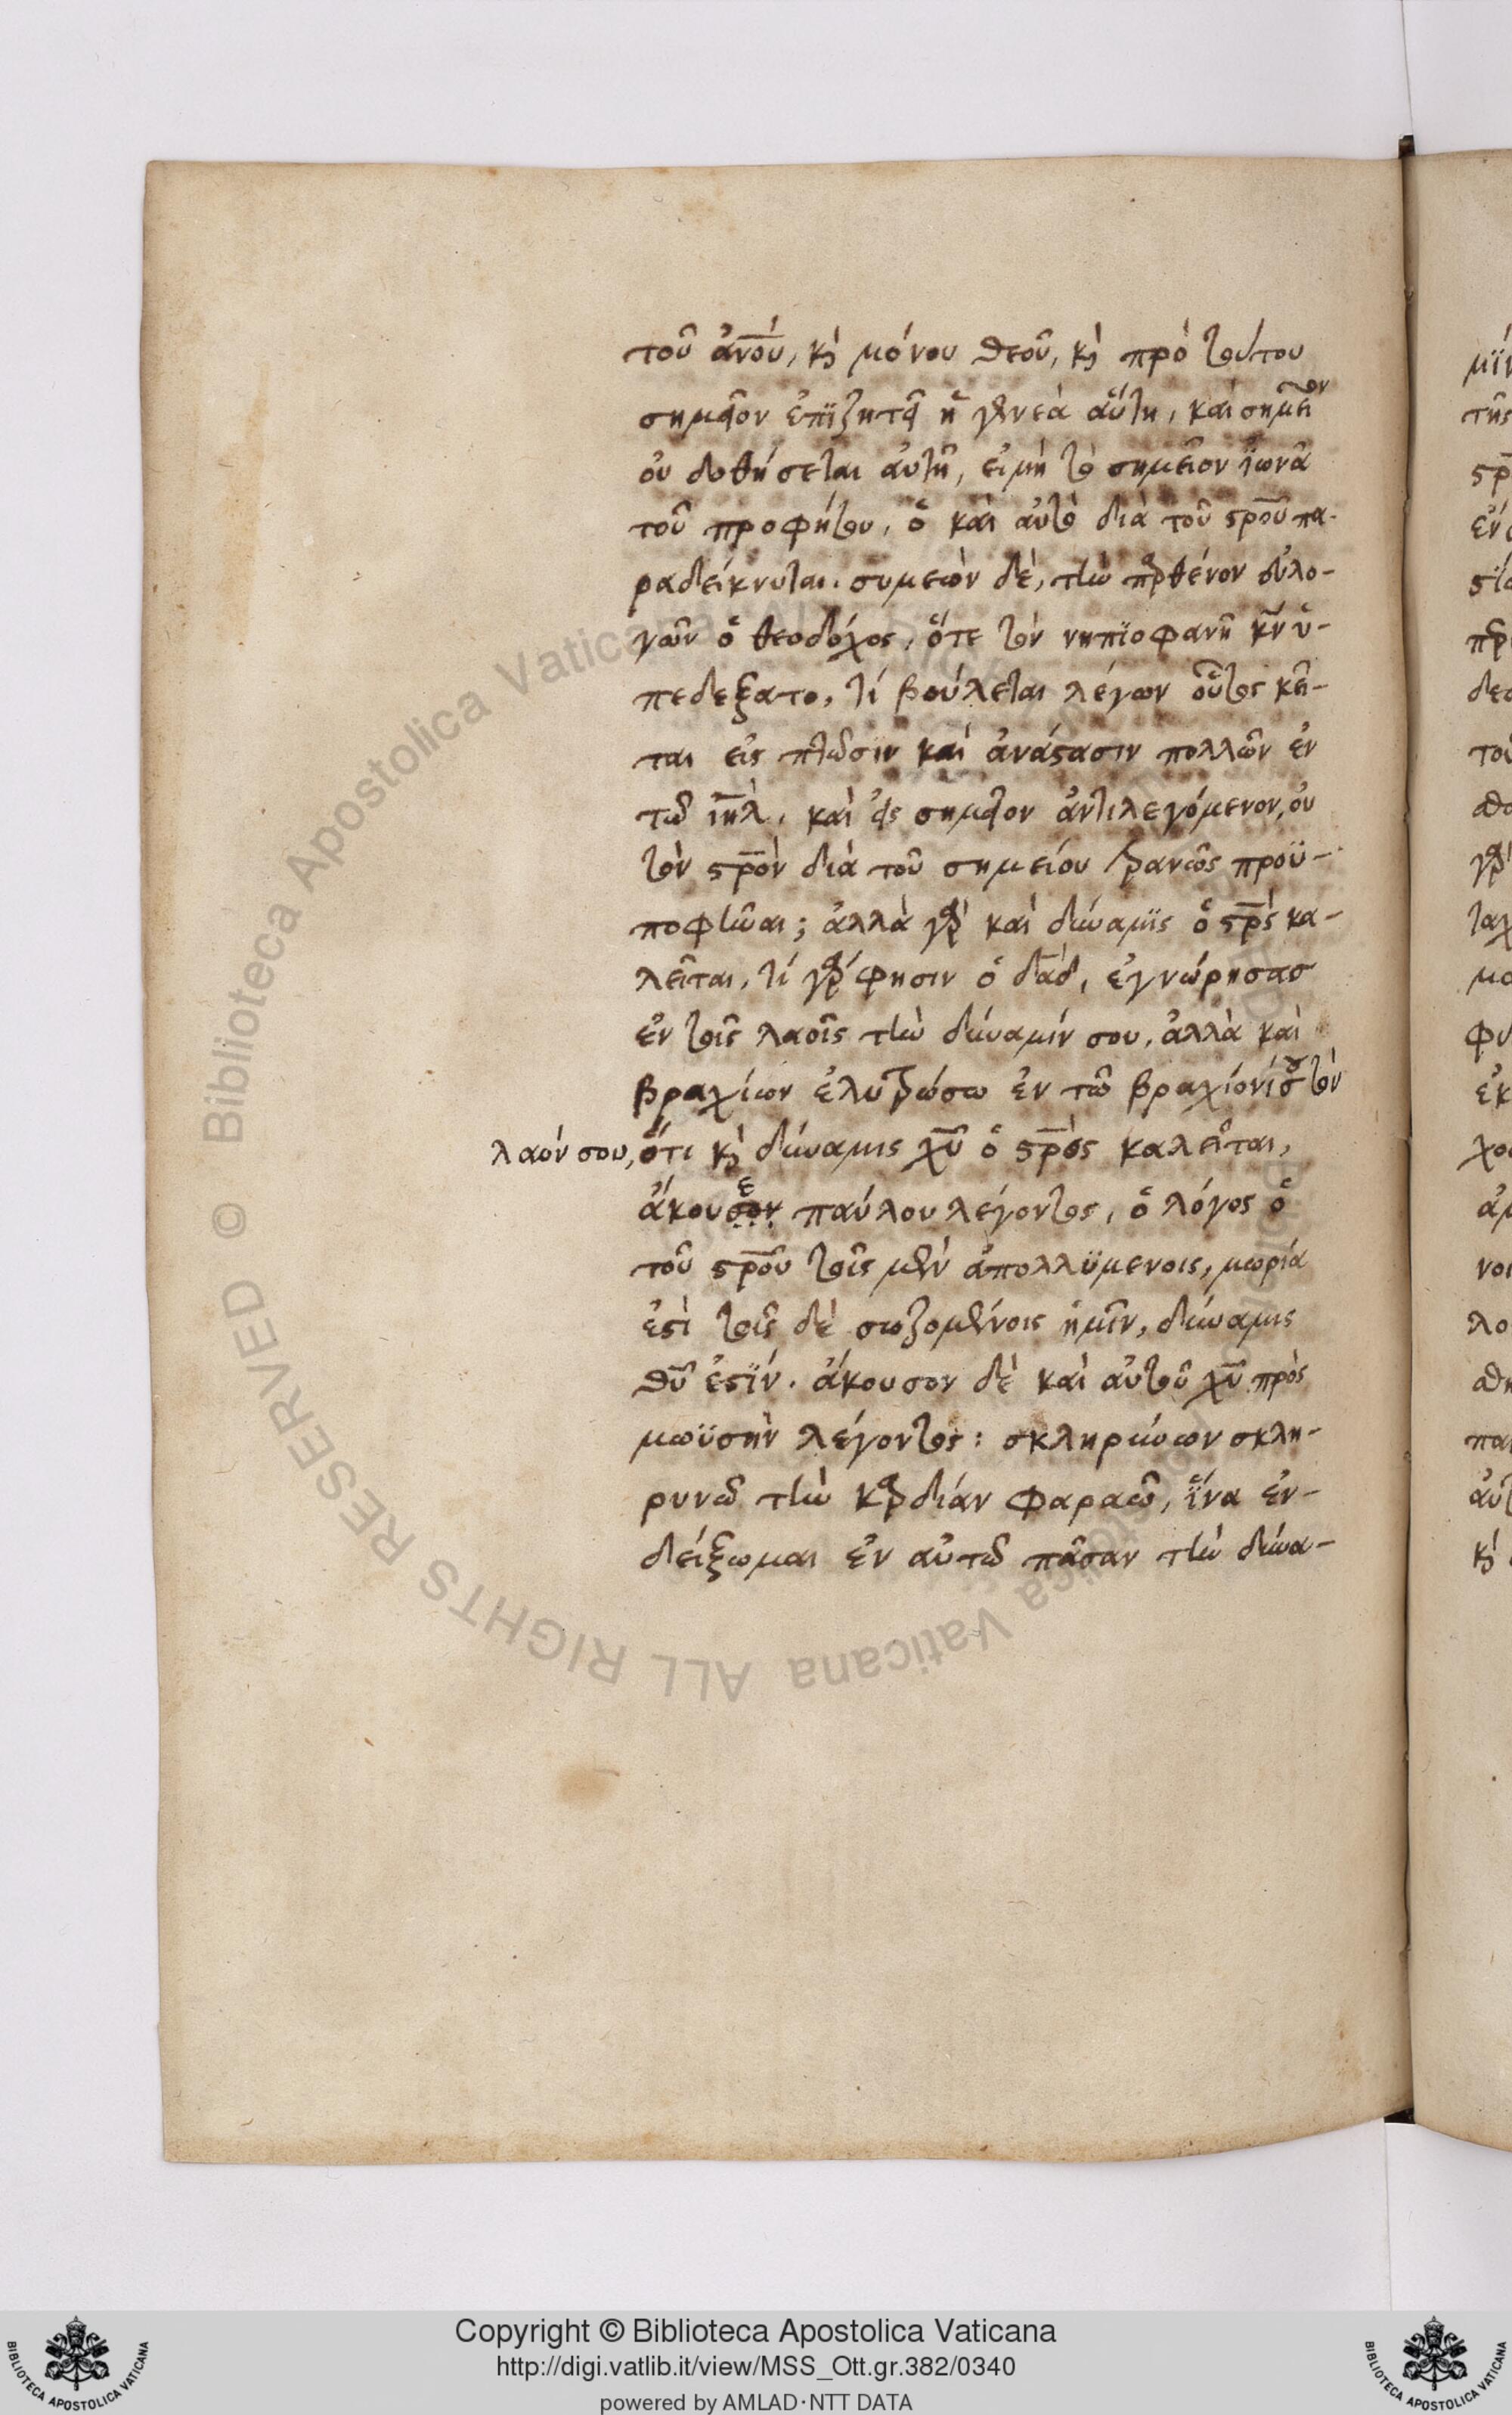 τοῦ ἀν̅ο̅ύ, κὶ μόνου θεοῦ, κὶ πρὸ τούτου
σημεῖον ἐπϊζητεῖ ἡ γενεὰ αὕτη, καὶ σημεῖον
οὐ δοθήσεται αὐτῆ, εἰμὴ τὸ σημεῖον ἰωνᾶ
τοῦ προφήτου, ὃ καὶ αὐτὸ διὰ τοῦ σρ̅ο̅ῦ πα-
ραδείκνυται. συμεὼν δὲ, τὴν παρθένον εὐλο-
γῶν ὁ θεοδόχος, ὅτε τὸν νηπϊοφανῆ κ̅ν̅ ὑ-
πεδεξατο, τί βούλεται λέγων οὗτος κεῖ-
ται εἰς πτῶσϊν καὶ ἀνάστασιν πολλῶν ἐν
τῶ ι̅η̅λ̅, καὶ εἰς σημεῖον ἀντιλεγόμενον, οὐ
τὸν σρ̅ο̅ν διὰ τοῦ σημείου τρανῶς προϋ-
ποφῆναι; ἀλλὰ γὰρ καὶ δύναμϊς ὁ σρ̅ς κα-
λεῖται, τί γάρ φησιν ὁ δα̅δ, ἐγνώρησας
ἐν τοῖς λαοῖς τὴν δύναμίν σου, ἀλλὰ καὶ
βραχίων ἐλυτρώσω ἐν τῶ βραχίονί σου τὸν
λαόν σου, ὅτι κὶ δύναμις χ̅υ̅ ὁ σρ̅ο̅ς καλεῖται,
ἄκουε παύλου λέγοντος, ὁ λόγος ὁ
τοῦ σρ̅ο̅ῦ τοῖς μὲν ἀπολλϋμενοις, μωρία
ἐστὶ τοῖς δὲ σωζομένοις ἡμῖν, δύναμις
θ̅υ̅ ἐστϊν. ἄκουσον δὲ καὶ αὐτοῦ χ̅υ̅ πρὸς
μωϋσὴν λέγοντος: σκληρύνων σκλη-
ρυνῶ τὴν καρδιάν φαραῶ, ἵνα ἐν-
δείξωμαι ἐν αὐτῶ πᾶσαν τὴν δύνα-
Copyright © Biblioteca Apostolica Vaticana
http://digi.vatlib.it/view/MSS_Ott.gr.382/0340
powered by AMLAD·NTT DATA